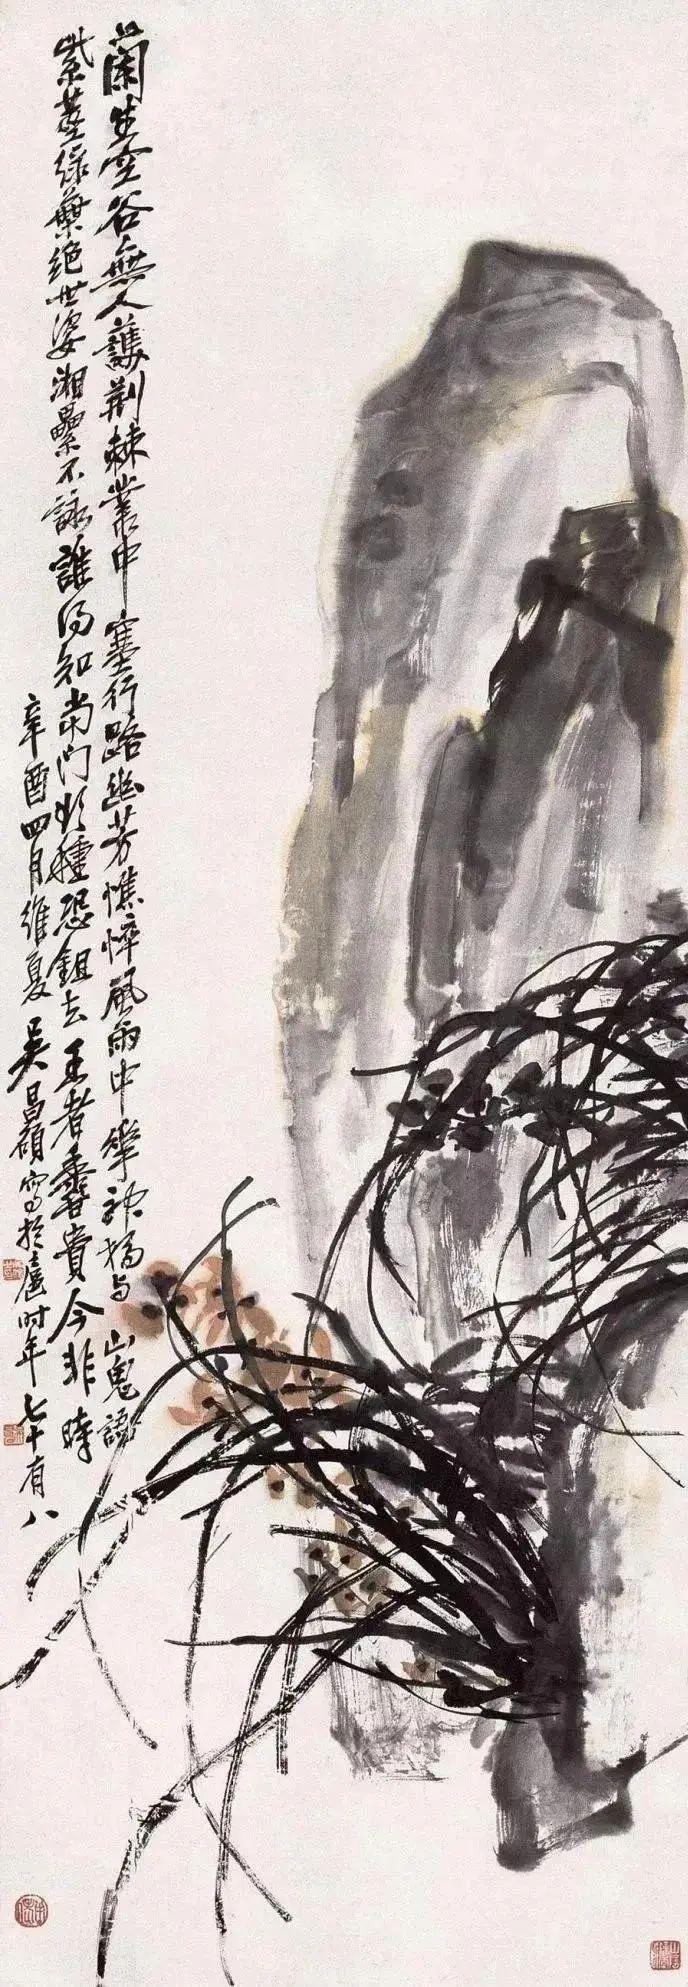 蘭生空谷無人護荊棘叢中塞行路幽芳憔悴風雨中華神獨与山鬼語
紫莖綠葉絕世姿湘纍不詠誰得知當門欲種恐鉏去王者香貴今非時
辛酉四月維夏吳昌碩寫於扈时年七十有八